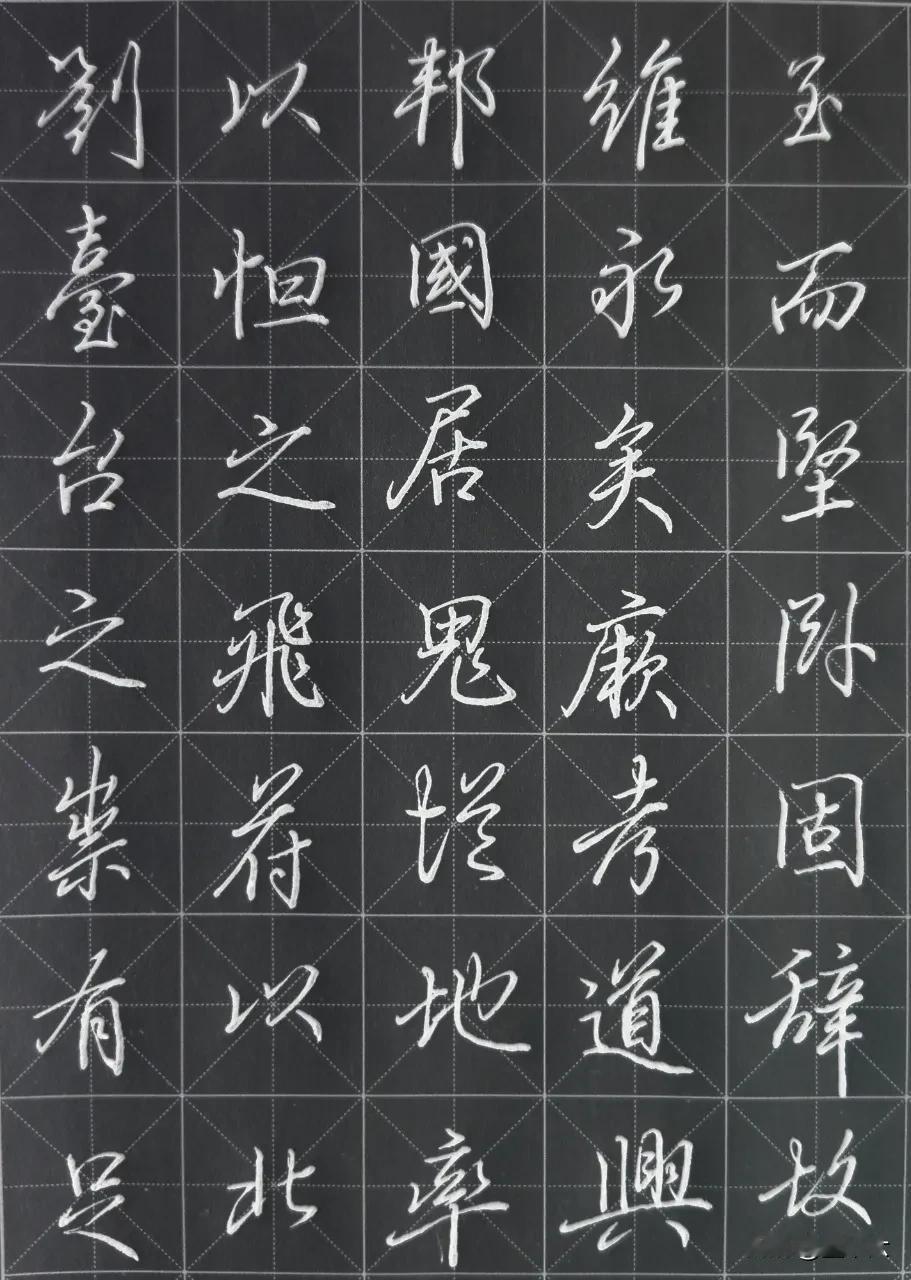 至而堅卧固辞故
維永矣厥考道興
邦國居鬼地率
以怛之飛符以北
劉臺台之業有足